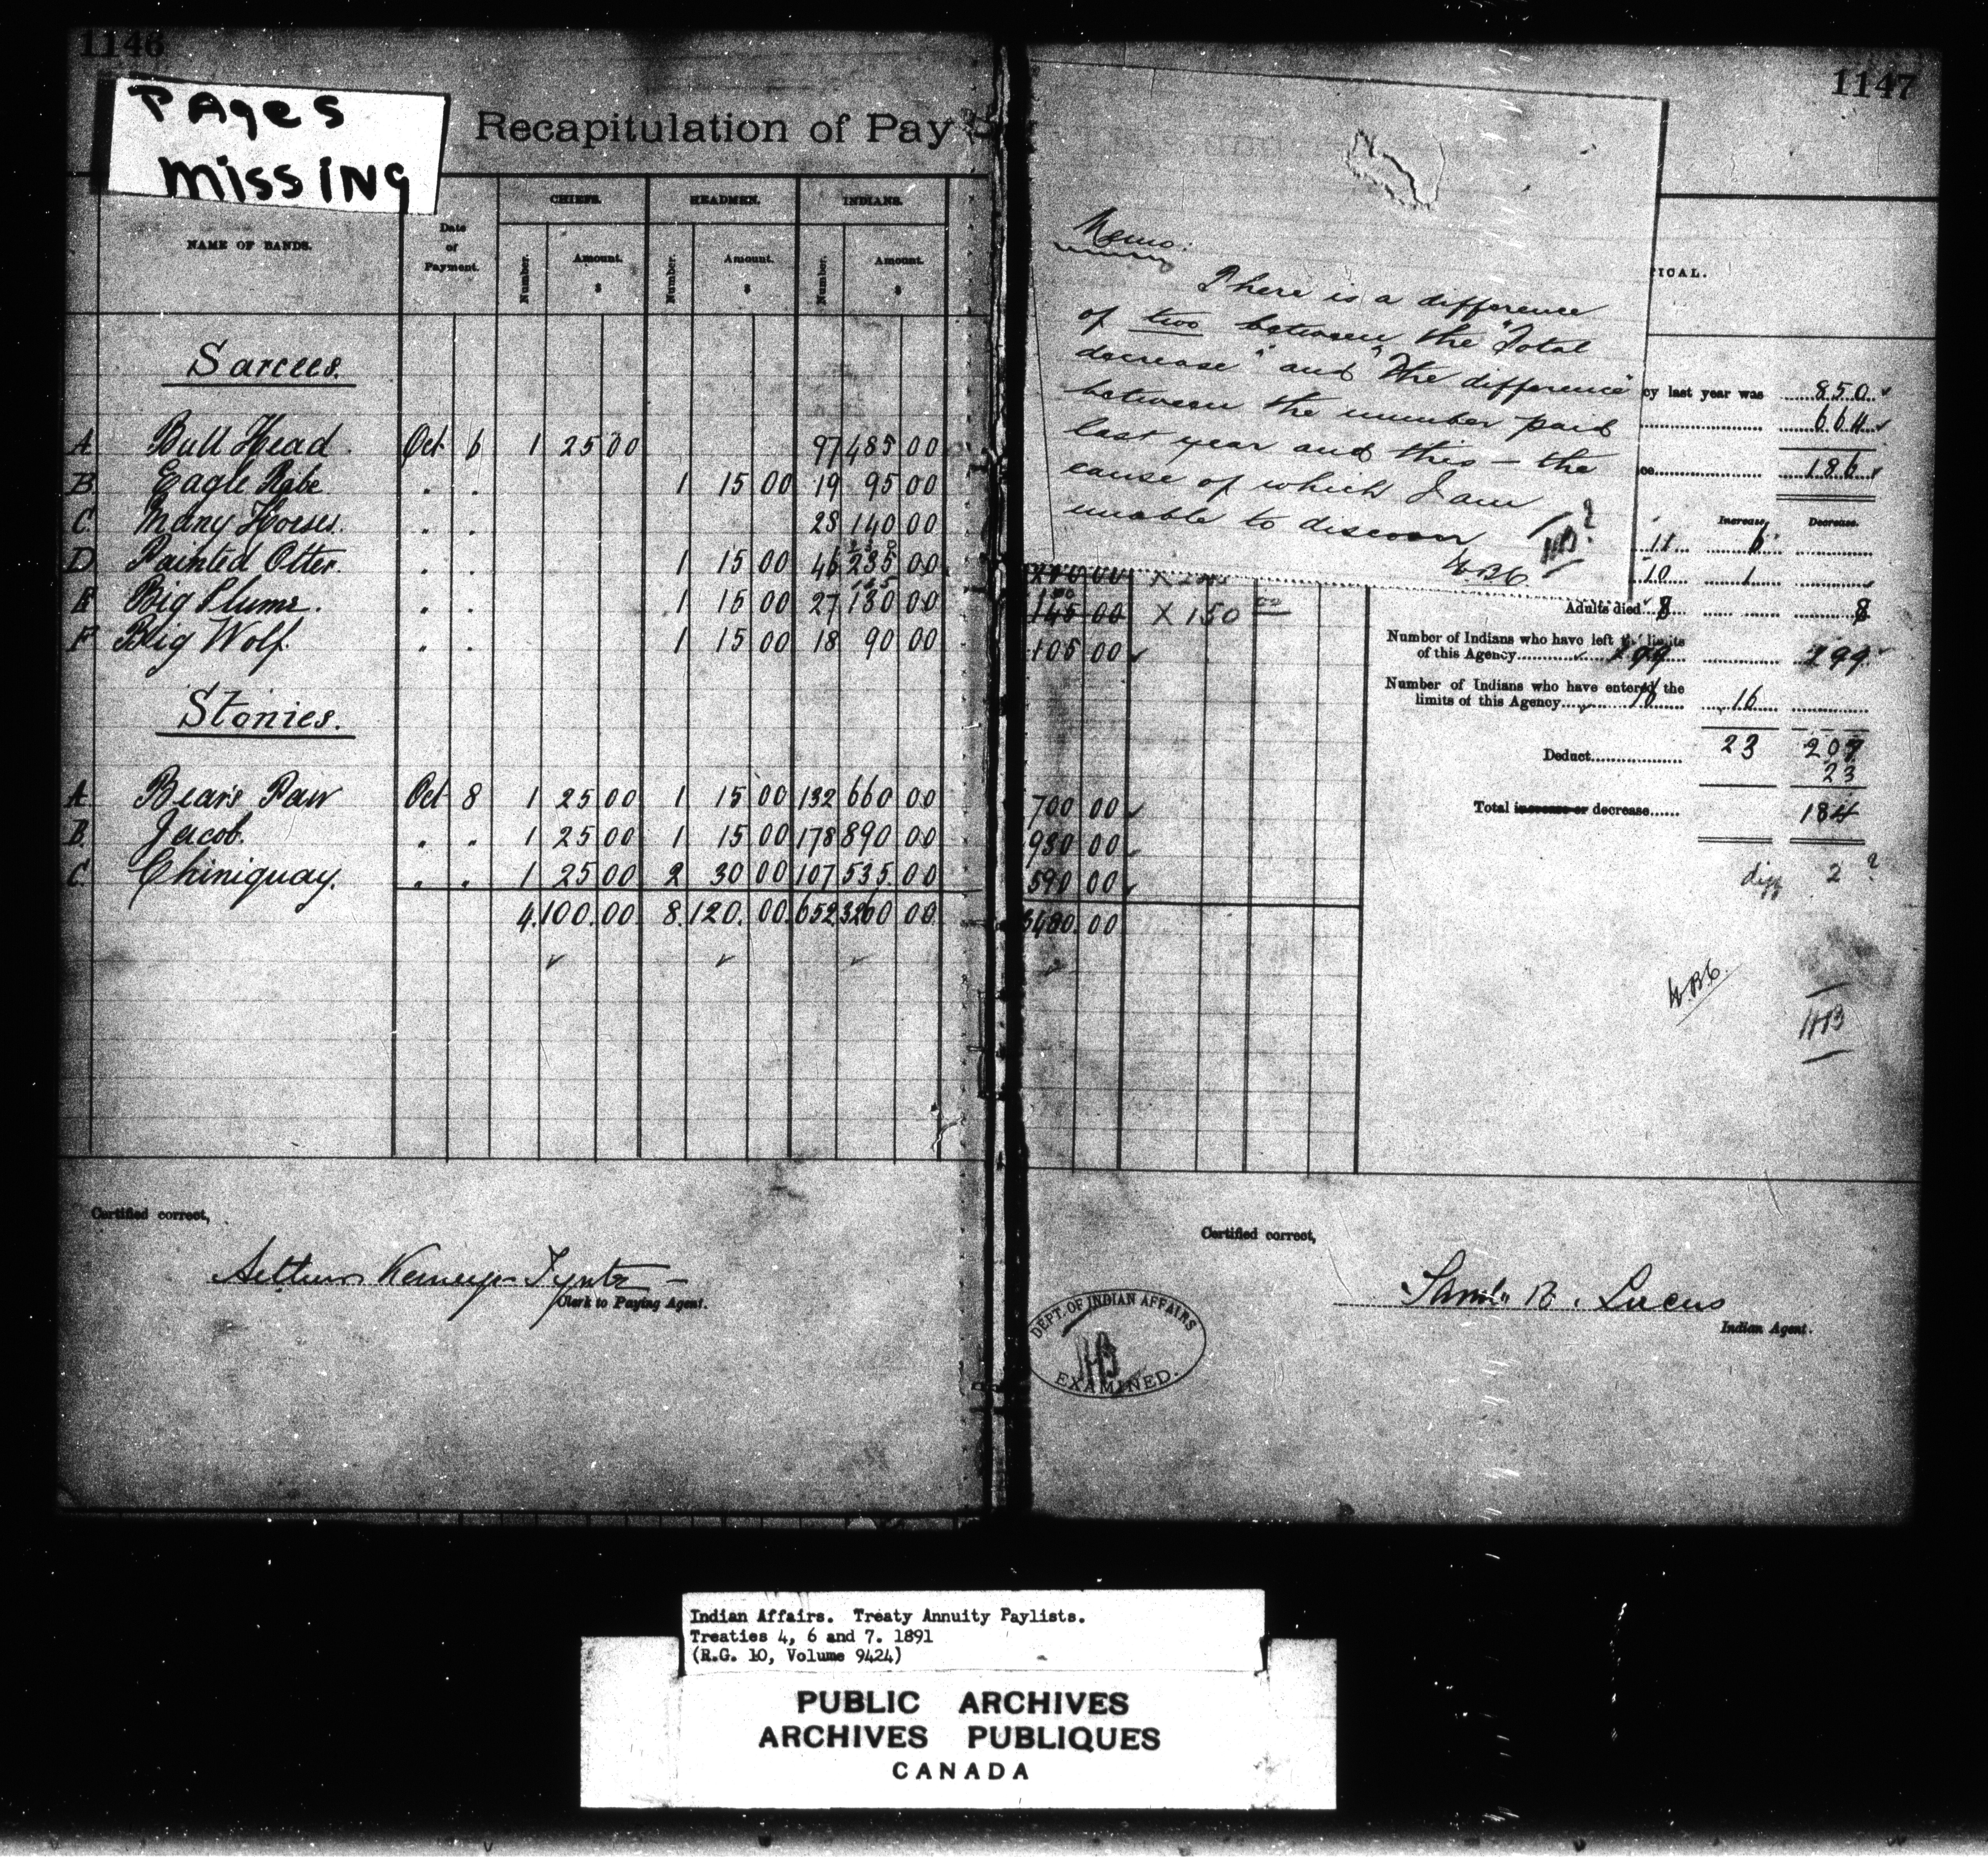 1146
PAges
missing
Recapitulation of Pay
NAME OF BANDS.
Date
of
Payment.
CHIEFS.
HEADMEN.
INDIANS.
Number. Amount. Number. Amount. Number. Amount.
$ $ $
Sarcees.
A Bull Head. Oct 6 1 25 00 97 485 00
B Eagle Robe 1 15 00 19 95 00
C Many Horses. 28 140 00
D Painted Otter. 1 15 00 46 235 00
E Big Plume. 1 15 00 27 130 00
F Big Wolf. 1 15 00 18 90 00
Stonies.
A Bears Paw Oct 8 1 25 00 1 15 00 132 660 00
B. Jacob. " " 1 25 00 1 15 00 178 890 00
C. Chiniquay. " " 1 25 00 2 30 00 107 535 00
4. 100. 00 8. 120. 00. 652 3260 00
Certified correct,
Clerk to Paying Agent.
1147
Memo:
There is a difference
of two between the "Total
decrease" and "the difference"
between the number paid
last year and this – the
cause of which I am
unable to discover
W.B.C.
HB ?
ICAL.
cy last year was 850
664
ce 186
Increase, Decrease.
11 6
10 1
Adults died 8 8
Number of Indians who have left the limits
of this Agency 199 199
Number of Indians who have entered the
limits of this Agency 16 16
23 207
Deduct 23
Total increase or decrease 184
diff 2 ?
145 00 X 150 00
105 00
700 00
930 00
590 00
3480 00
W.B.C.
HB
Certified correct,
Saml. B. Lucas
Indian Agent.
DEPT. OF INDIAN AFFAIRS
HB
EXAMINED.
Indian Affairs. Treaty Annuity Paylists.
Treaties 4, 6 and 7. 1891
(R.G. 10, Volume 9424)
PUBLIC ARCHIVES
ARCHIVES PUBLIQUES
CANADA